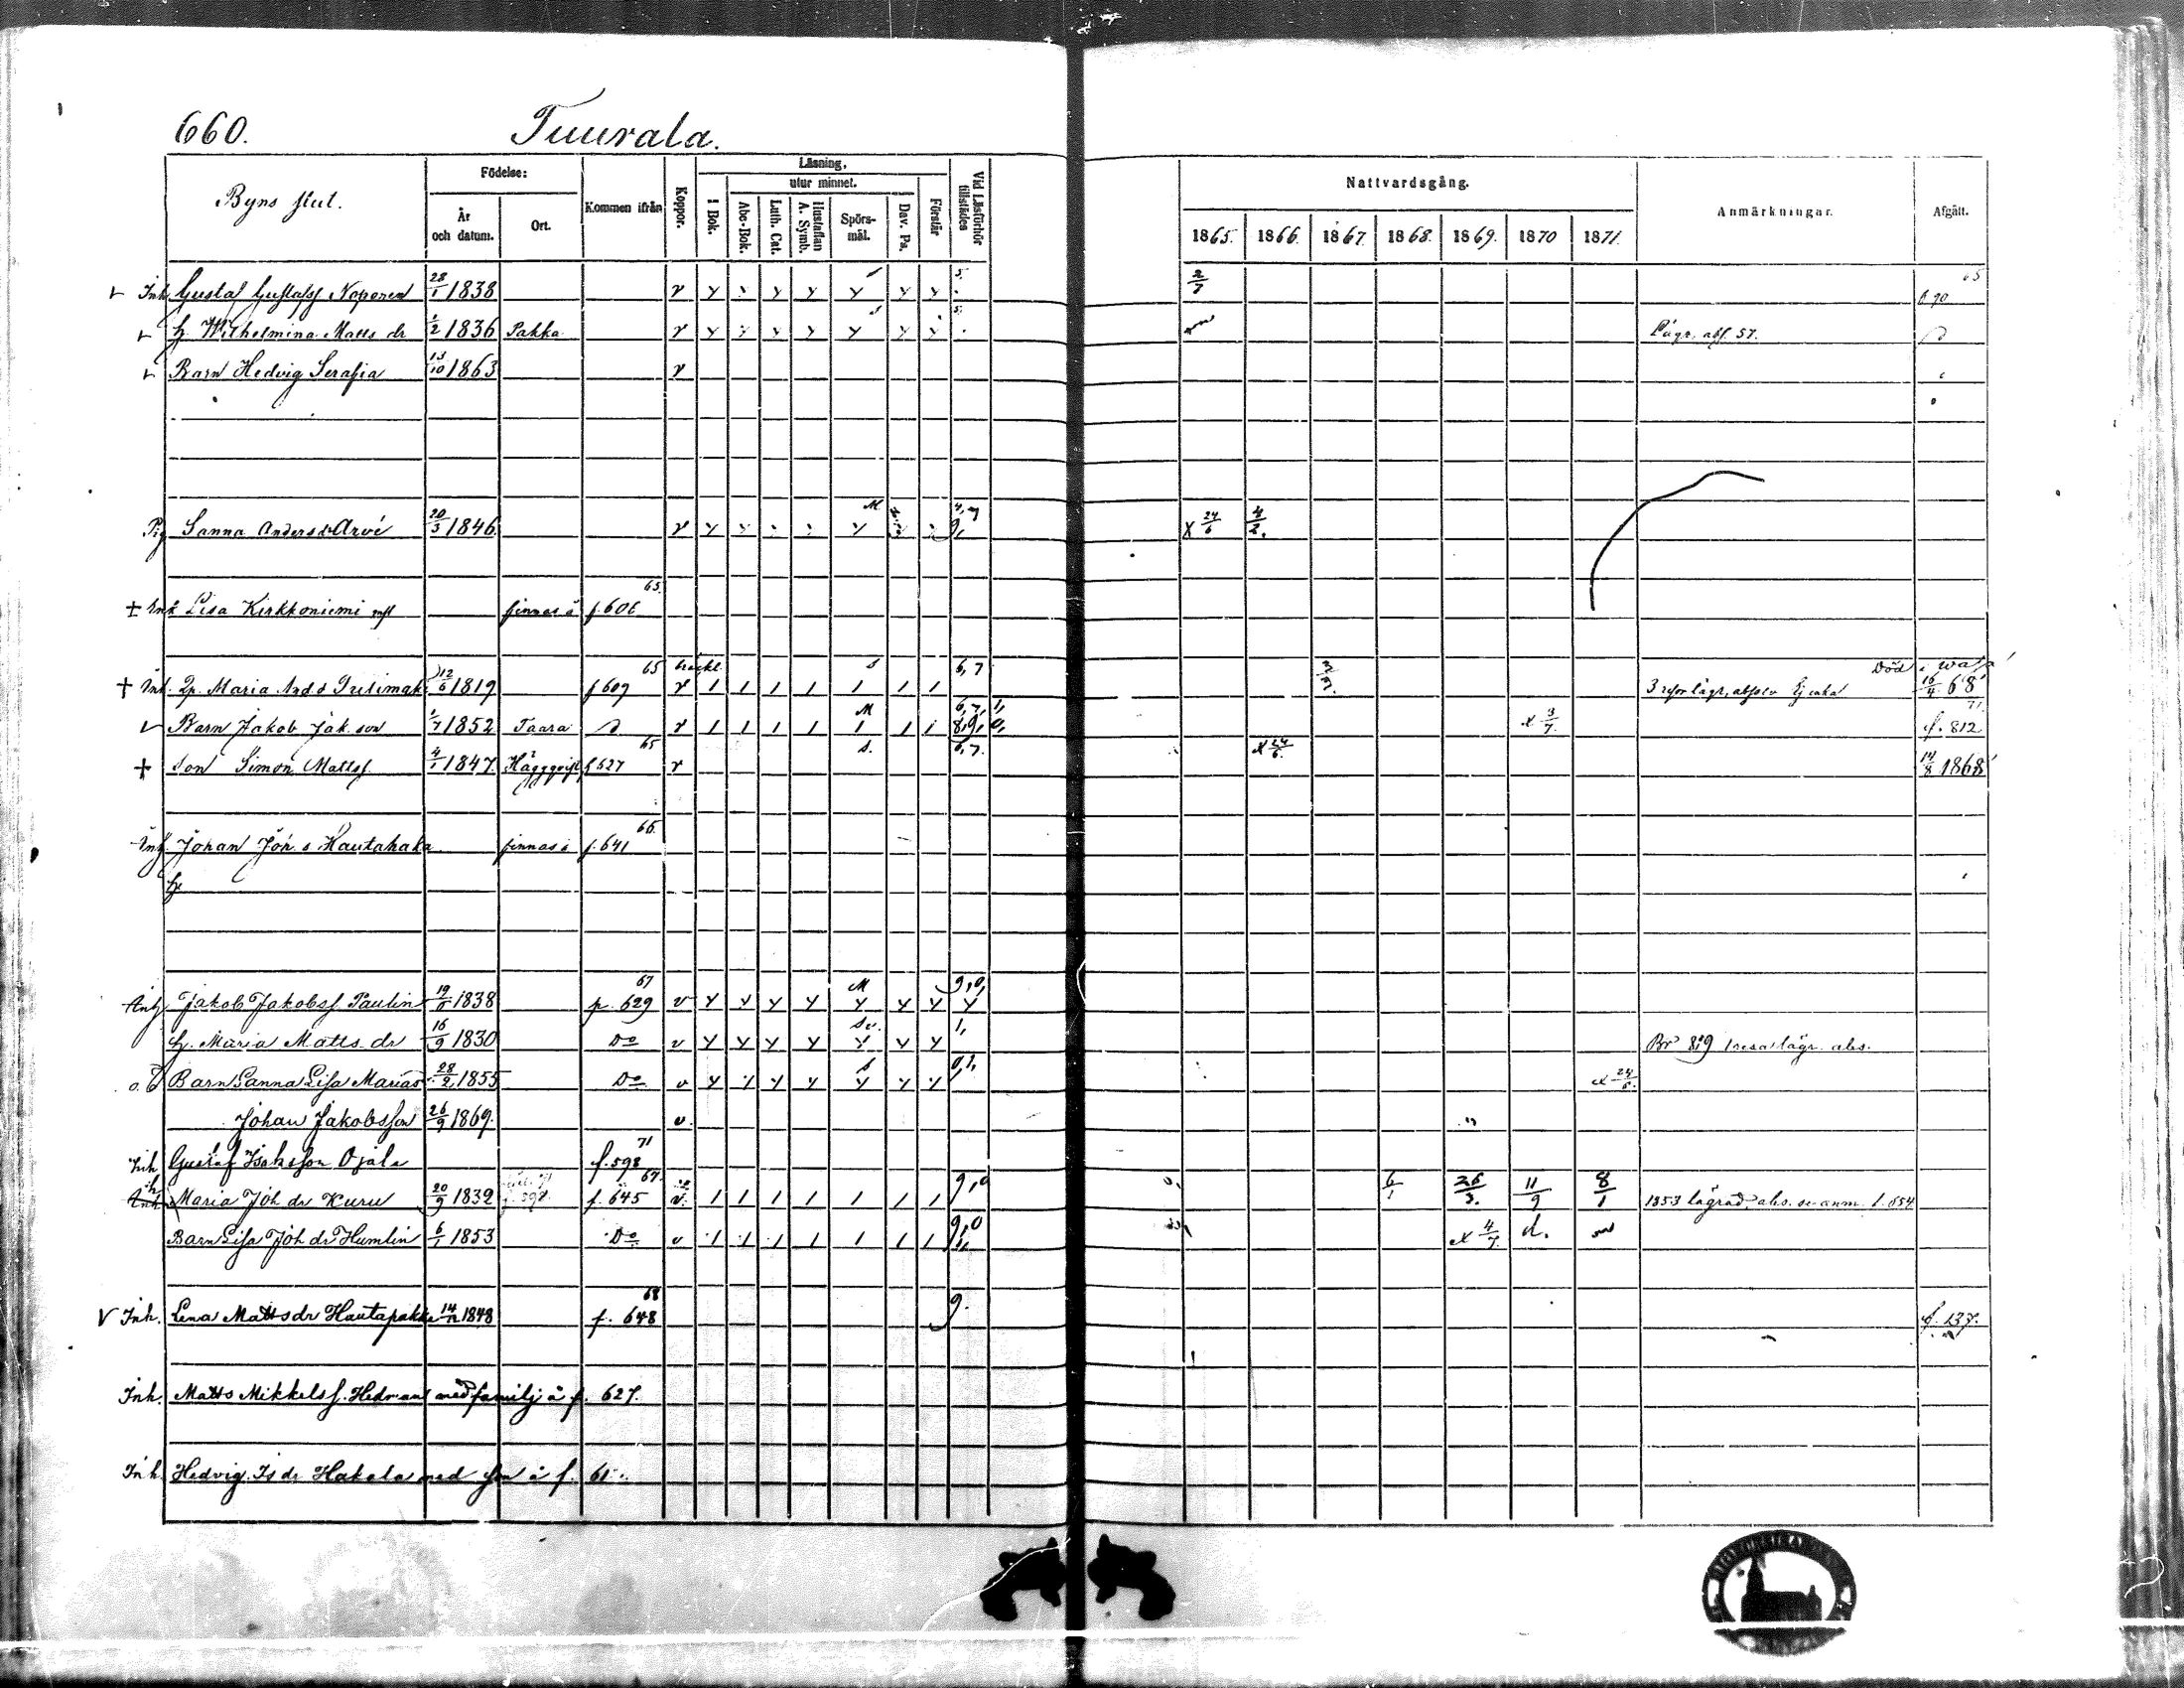 660.
Tuurala.
Byns slut.
Födelse:
År och datum.
Ort.
Kommen ifrån
Koppor.
Läsning.
I Bok.
utur minnet.
Abc-Bok.
Luth. Cat.
Hustaflan A. Symb.
Spörs-mål.
Dav. Ps.
Förstår
Vid Läsförhör tillstädes
Nattvardsgång.
1865. 1866. 1867. 1868. 1869. 1870 1871.
Anmärkningar.
Afgått.
Inh. Gustaf Gustafss Noponen 28/1 1838 v y y y y y y y 5. 2/7 65
h. Wilhelmina Matts dr 1/2 1836 Pakka v y y y y y y y 5. Lägr. abs. 57.
Barn Hedvig Serafia 13/10 1863 v
Pig Sanna Anders dr Arvé 20/3 1846 v y y M y 4,7 9, x 24/6 4/2.
+ Inh Lisa Kirkkoniemi finnas å f. 606 65.
+ Inh. Maria And d 12/6 1819 f 609 65 v 1 1 1 1 s 1 1 1 6,7 Död i Wasa 16/4 68
Barn Jakob Jak. son 1/7 1852 Taara v 1 1 1 1 M 1 1 1 6,7,1, 8,9,0, x 3/7. 71 f. 812
+ son Simon Mattss. 4/1 1847. Häggqvist f 627 65 v s. 6,7. x 24/6. 14/8 1868
Inh. Johan Joh. s Hautahaka finnas å f. 641 66.
h.
Inh Jakob Jakobss. Paulin 19/11 1838 p. 629 67 v y y y y M y y y 9,0, y
h. Maria Matts dr 16/9 1830 Do v y y y y sv. y y y 1, Br 8;9 1 resa lägr. abs.
Barn Sanna Lisa Marias 28/2 1855 Do v y y y y s y y y 0,1, x 24/6.
Johan Jakobsson 26/9 1869. v. "
Inh Gustaf Isaksson Ojala f. 598 71
Inh Maria Joh dr Kuru 20/9 1832 f. 645 67. v. 1 1 1 1 1 1 1 9,0 6/1 26/3. 11/9 8/1 1853 lägrad, abs. se anm. f. 654
Barn Lisa Joh dr Humlin 6/1 1853 Do v 1 1 1 1 1 1 1 9,0 1, x 4/7. d.
V Inh. Lena Matts dr Hautapakka 14/12 1848 f. 648 68 9. f. 137.
Inh. Matts Mikkelss. Hedman med familj å f. 627.
Inh. Hedvig Is dr Hakola med son å f.